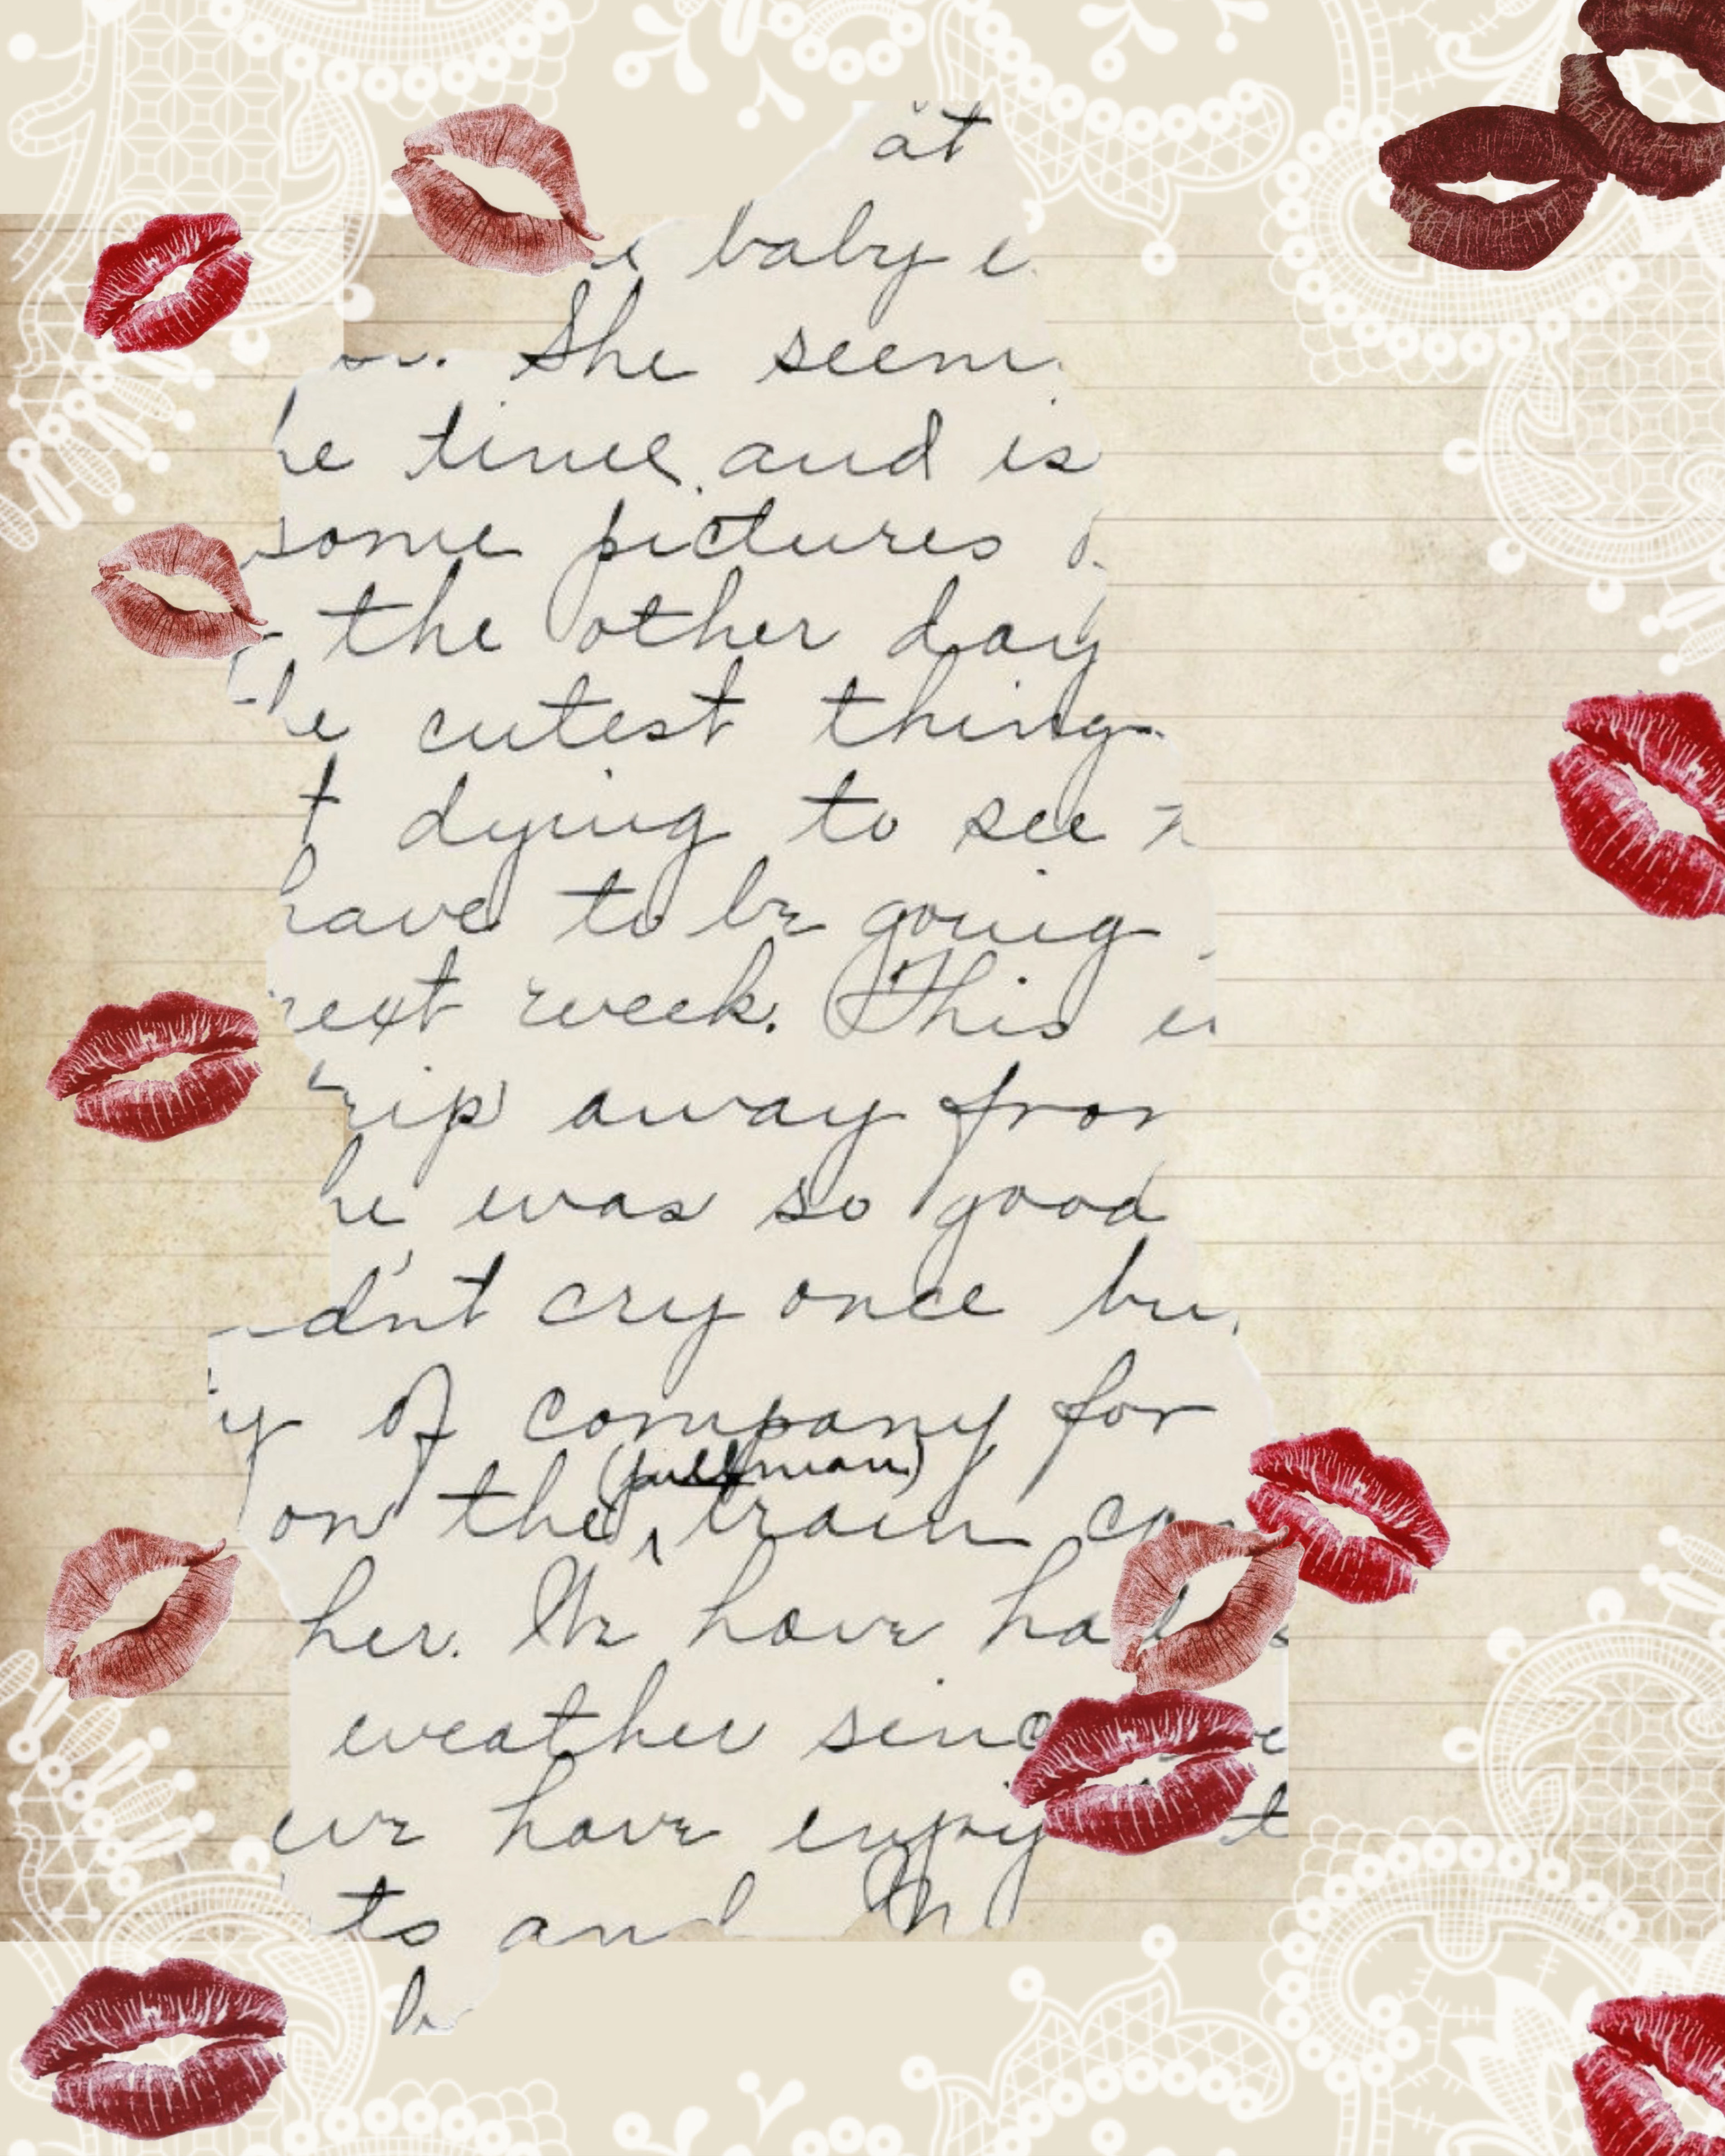 at
baby
She seem
he time and is
some pictures
the other day
he cutest thing
dying to see
have to be going
next week. This
rip away from
he was so good
dn't cry once bu
y of company for
(pullman)
on the train ca
her. We have ha
weather sinc
we have enjoy
ts and